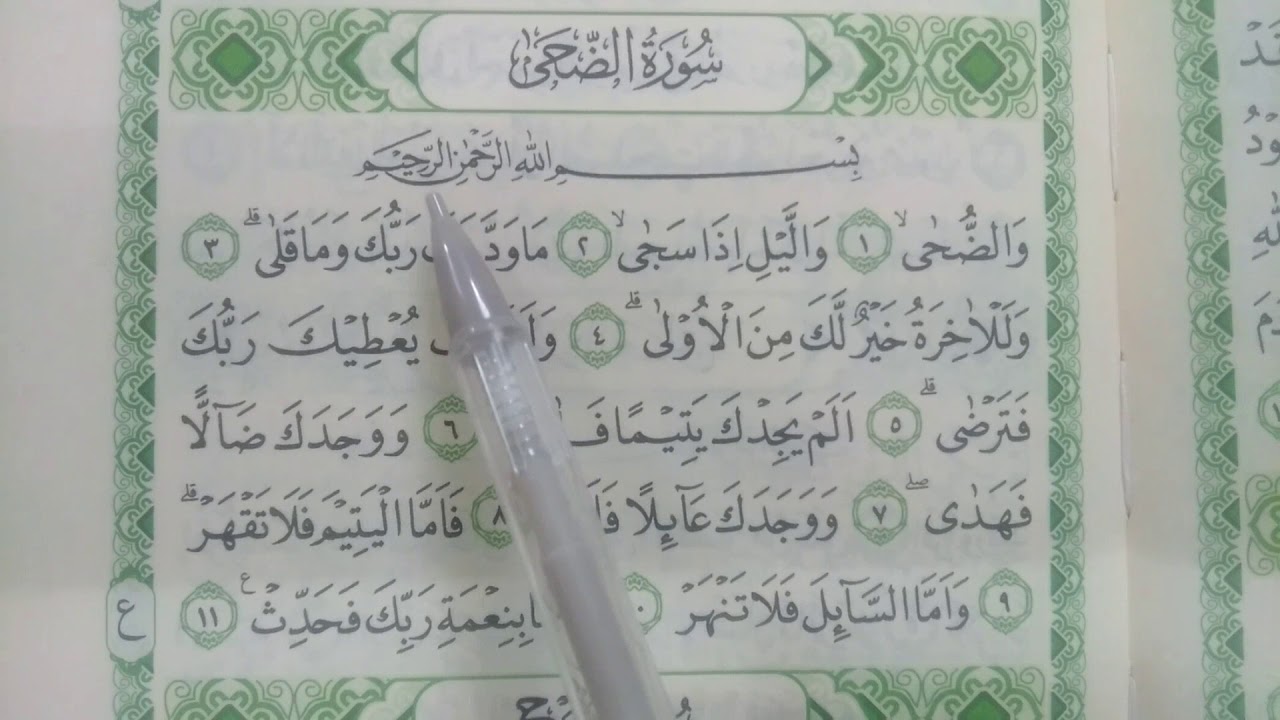 سُورَةُ الضُّحَىٰ
بِسْمِ اللّٰهِ الرَّحْمٰنِ الرَّحِيْمِ
وَالضُّحٰىۙ ١ وَالَّيْلِ اِذَا سَجٰىۙ ٢ مَا رَبُّكَ وَمَا قَلٰىۗ ٣
وَلَلْاٰخِرَةُ خَيْرٌ لَّكَ مِنَ الْاُوْلٰىۗ ٤ يُعْطِيْكَ رَبُّكَ
فَتَرْضٰىۗ ٥ اَلَمْ يَجِدْكَ يَتِيْمًا ٦ وَوَجَدَكَ ضَاۤلًّا
فَهَدٰىۖ ٧ وَوَجَدَكَ عَاۤىِٕلًا ٨ فَاَمَّا الْيَتِيْمَ فَلَا تَقْهَرْۗ
٩ وَاَمَّا السَّاۤىِٕلَ فَلَا تَنْهَرْ بِنِعْمَةِ رَبِّكَ فَحَدِّثْ ࣖ ١١
ع